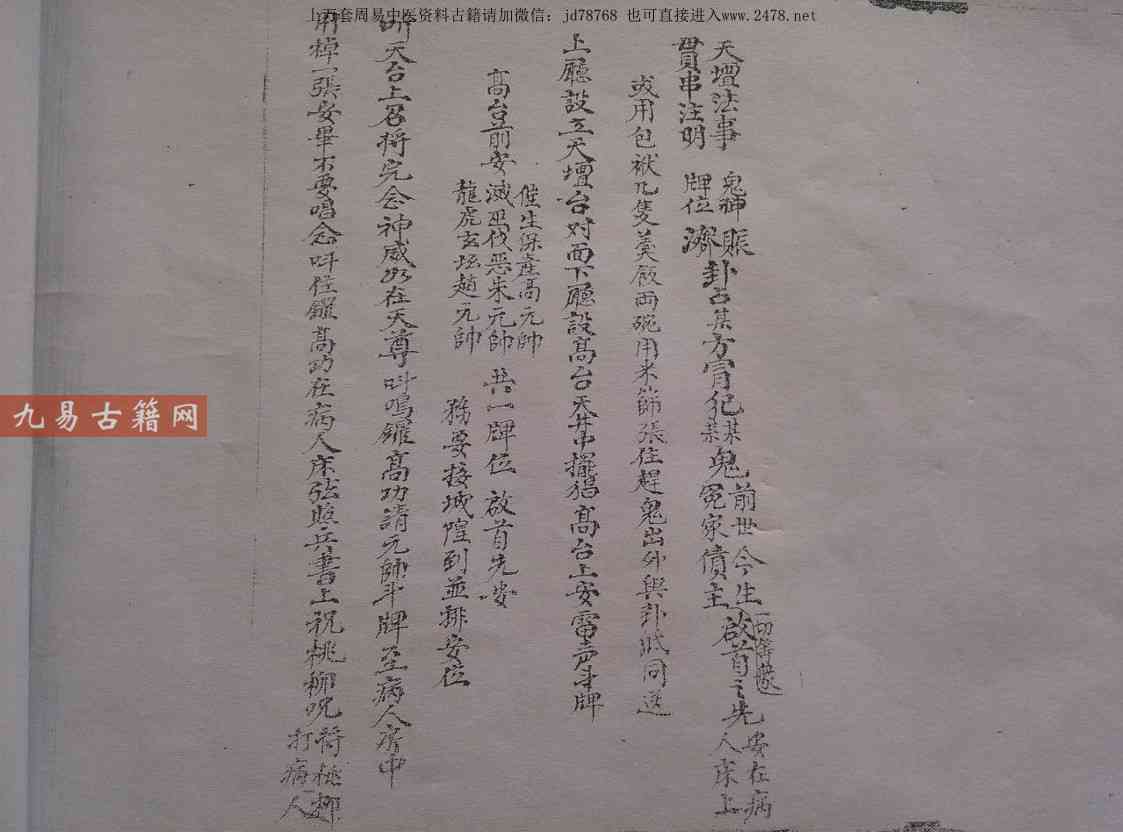 上万套周易中医资料古籍请加微信：jd78768 也可直接进入www.2478.net
天壇法事 鬼神 賑
貫串注明 牌位 濟
卦占某方冒犯某某鬼 前世今生
冤家債主
啟首之先 安在病
人床上
或用包袱几隻羹飯両碗用米篩張住趕鬼出外與卦賑同送
上廳設立天壇台对面下廳設髙台天井中擺猖髙台上安雷壳斗牌
髙台前安
催生保產髙元帥
滅巫伐惡朱元帥 共一牌位 啟首先安
龍虎玄坛趙元帥
務要接城隍到並排安位
天台上召将完念神威如在天尊叫鳴鑼髙功請元帥斗牌至病人房中
用棹一張安畢不要唱念叫住鑼髙功在病人床弦照兵書上祝桃柳咒 符桃柳
打病人
九易古籍网